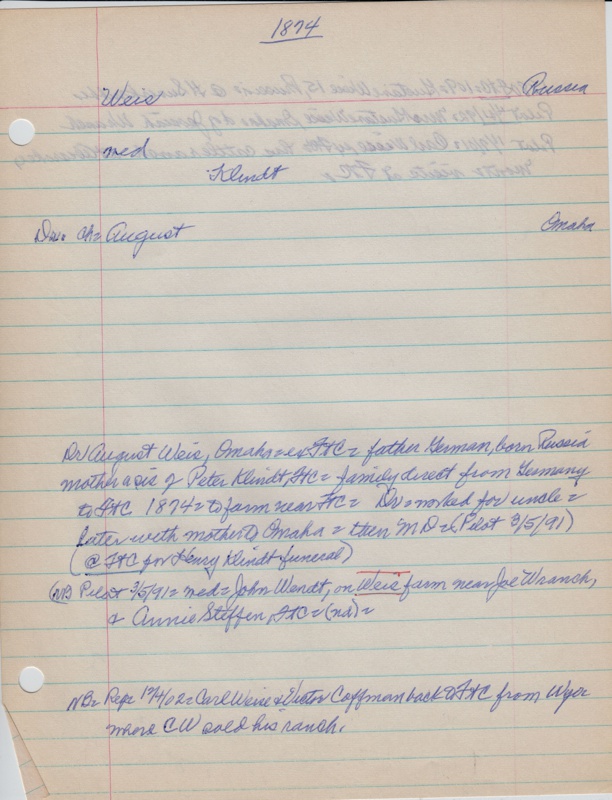 1874
Weis Russia
med
Klindt
Dr. ch = August Omaha
Dr August Weis, Omaha = ex FtC = father German, born Russia
mother a sis of Peter Klindt, FtC = family direct from Germany
to FtC 1874 = to farm near FtC = Dr = worked for uncle =
later with mother to Omaha = then MD = (Pilot 3/5/91)
(@ FtC for Henry Klindt funeral)
(NB Pilot 3/5/91 = med = John Wendt, on Weis farm near Joe Wranch,
& Annie Steffen, FtC = (nd) =
NB = Rep 12/4/02 = Carl Weise & Victor Coffman back to FtC from Wyo
where CW sold his ranch.